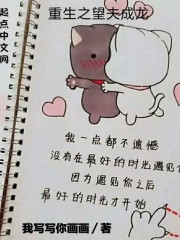 重生之望夫成龙
起点中文网
我一点都不遗憾
没有在最好的时光遇见你
因为遇见你之后
最好的时光才开始
我写写你画画/著